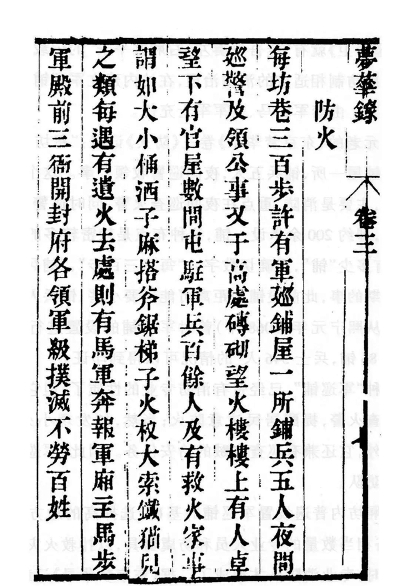 夢華錄 卷三
防火
每坊巷三百步許有軍廵鋪屋一所鋪兵五人夜間
廵警及領公事又于高處磚砌望火樓樓上有人卓
望下有官屋數間屯駐軍兵百餘人及有救火家事
謂如大小桶洒子麻搭斧鋸梯子火杈大索鐵猫兒
之類每遇有遺火去處則有馬軍奔報軍廂主馬步
軍殿前三衙開封府各領軍級撲滅不勞百姓